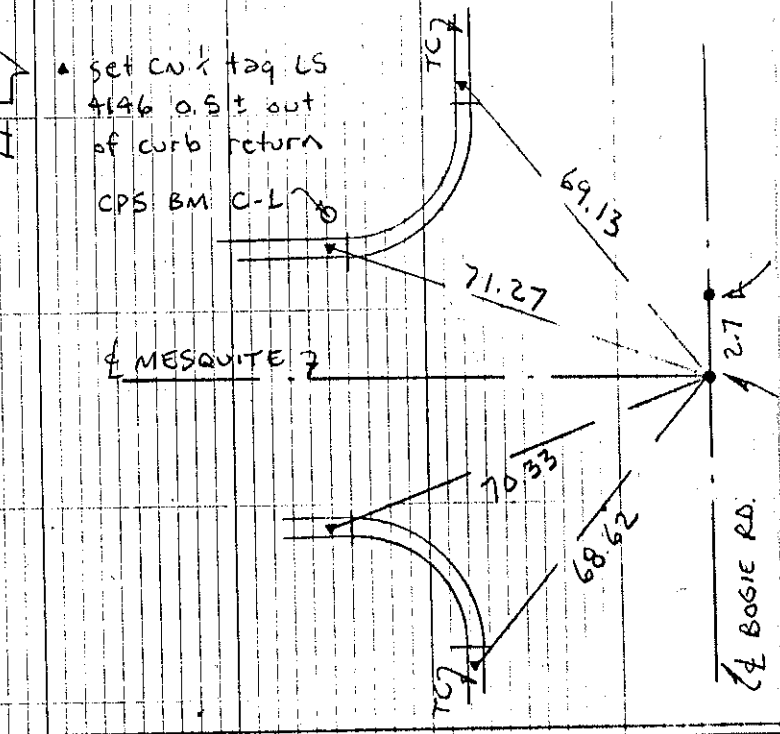 ▲ set CN & tag LS
4146 0.5 ± out
of curb return
CPS BM C-L
TC
69.13
71.27
2.7
℄ MESQUITE
70.33
68.62
TC
℄ BOGIE RD.